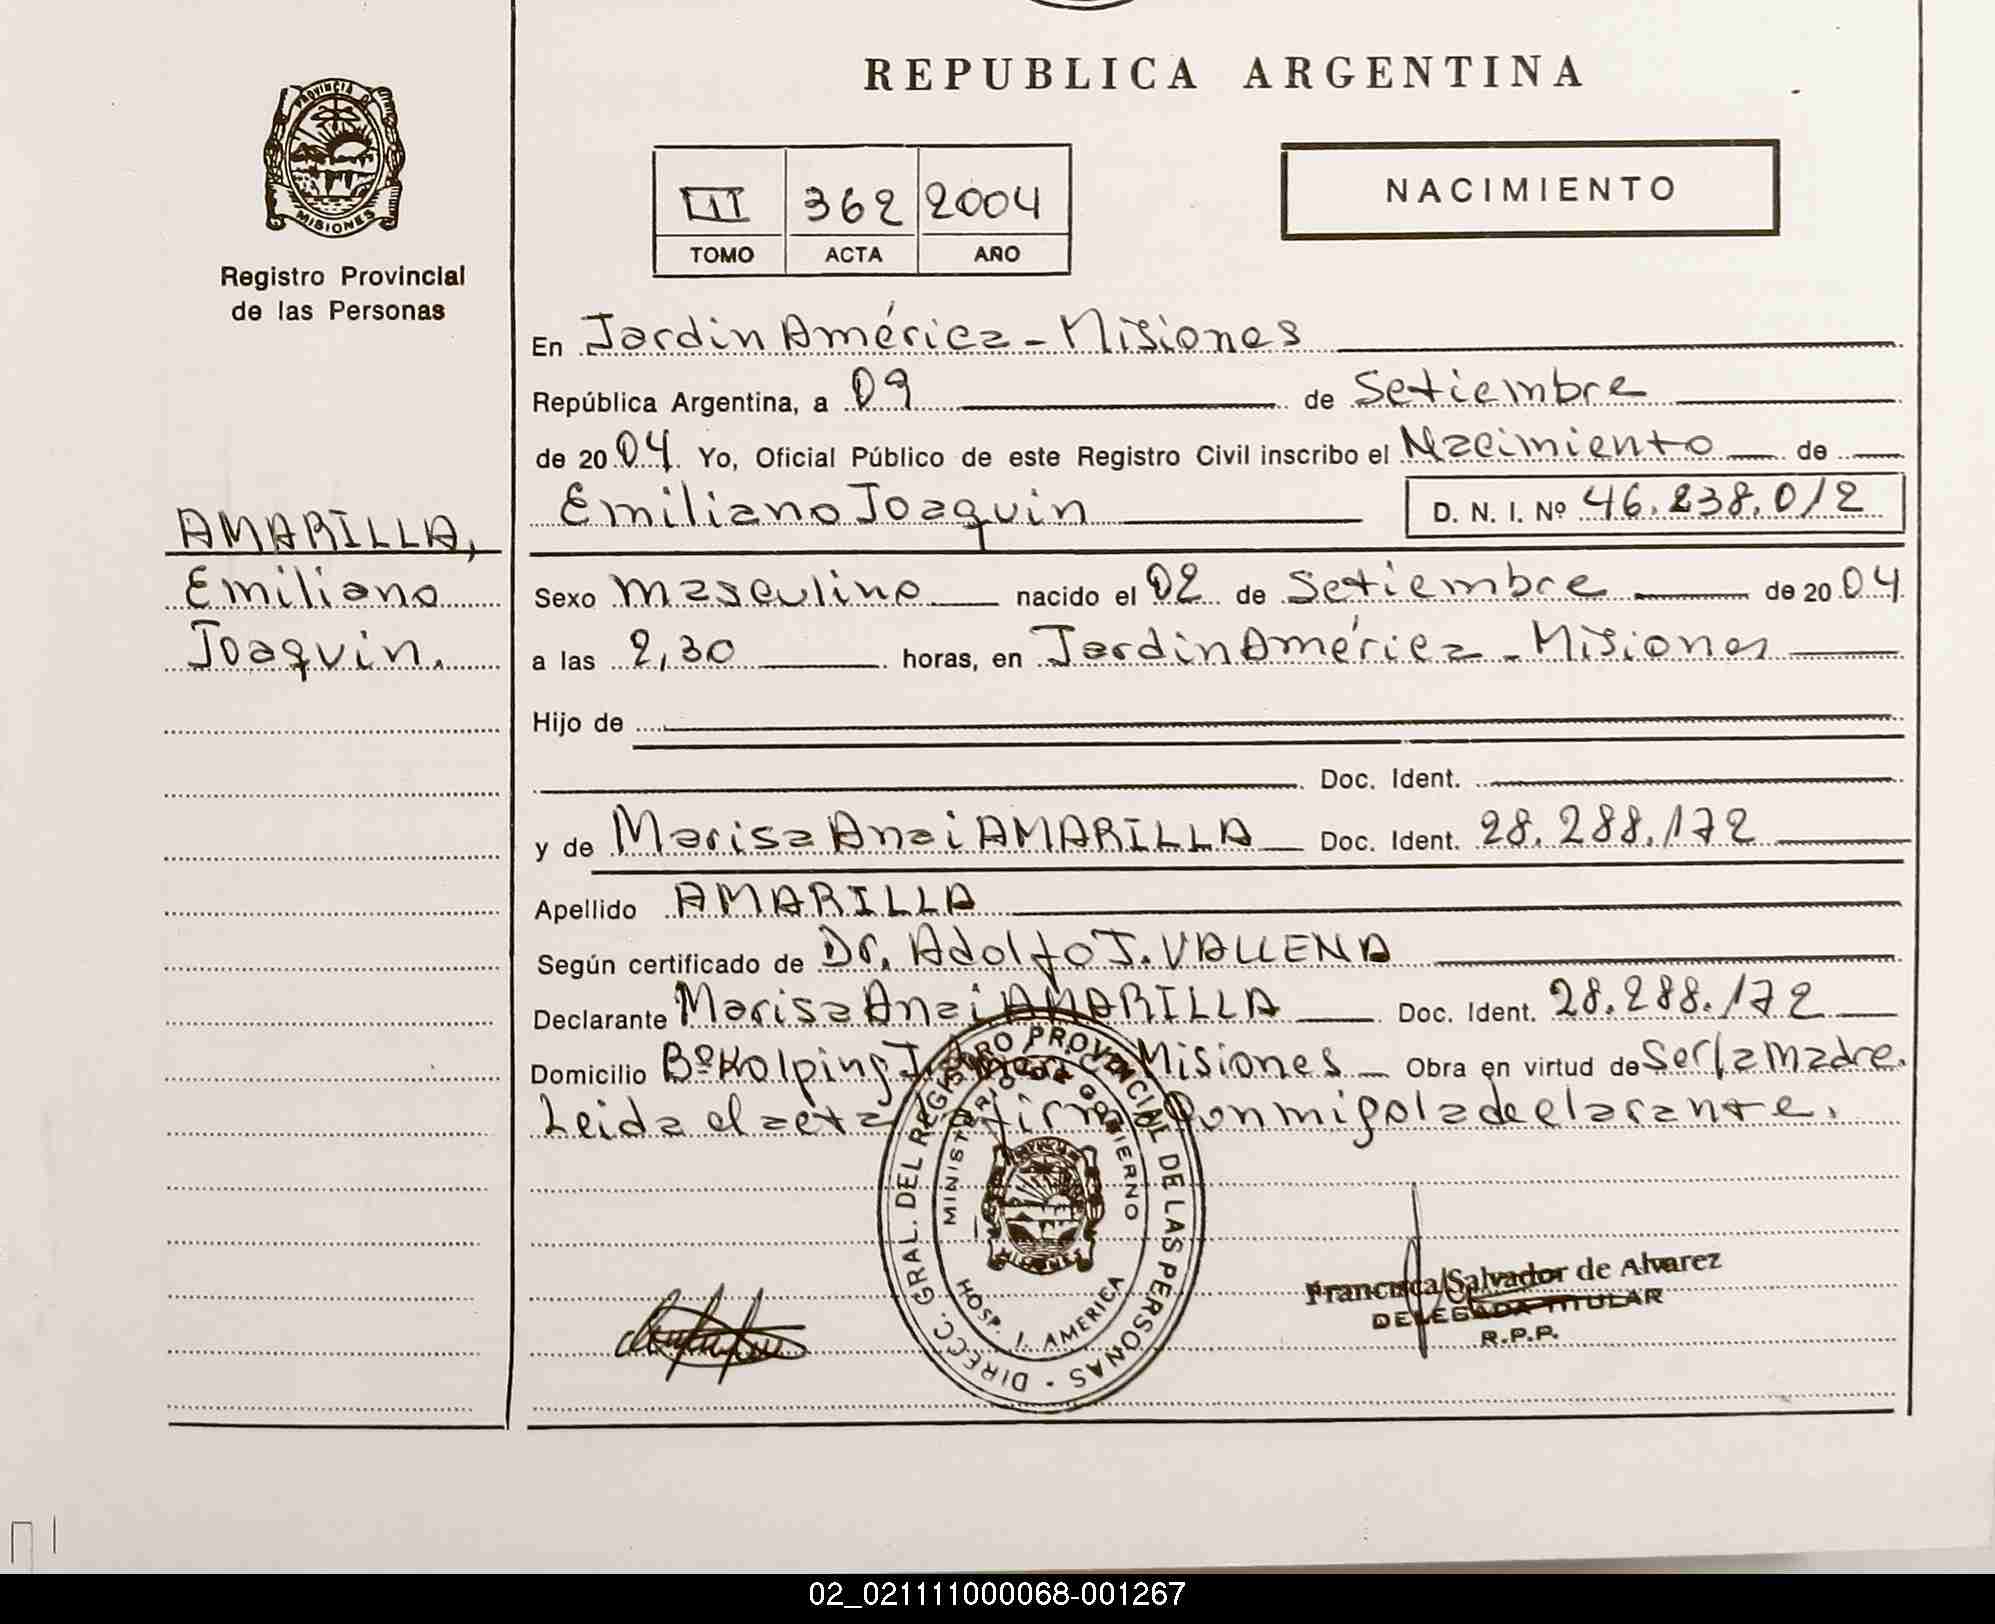 REPUBLICA ARGENTINA
PROVINCIA DE
MISIONES
Registro Provincial
de las Personas
III 362 2004
TOMO ACTA AÑO
NACIMIENTO
En Jardin América - Misiones
República Argentina, a 09 de Setiembre
de 2004. Yo, Oficial Público de este Registro Civil inscribo el Nacimiento de
Emiliano Joaquin D. N. I. Nº 46.238.012
AMARILLA,
Emiliano
Joaquin.
Sexo Masculino nacido el 02 de Setiembre de 2004
a las 2,30 horas, en Jardin América - Misiones
Hijo de
Doc. Ident.
y de Marisa Anai AMARILLA Doc. Ident. 28.288.172
Apellido AMARILLA
Según certificado de Dr. Adolfo J. VALLENA
Declarante Marisa Anai AMARILLA Doc. Ident. 28.288.172
Domicilio Bº Kolping Misiones Obra en virtud de Ser la madre.
Leida el acta firma conmigo la declarante.
DIRECC. GRAL. DEL REGISTRO PROVINCIAL DE LAS PERSONAS
MINISTERIO DE GOBIERNO
HOSP. J. AMERICA
MISIONES
Francisca Salvador de Alvarez
DELEGADA TITULAR
R.P.P.
02_021111000068-001267